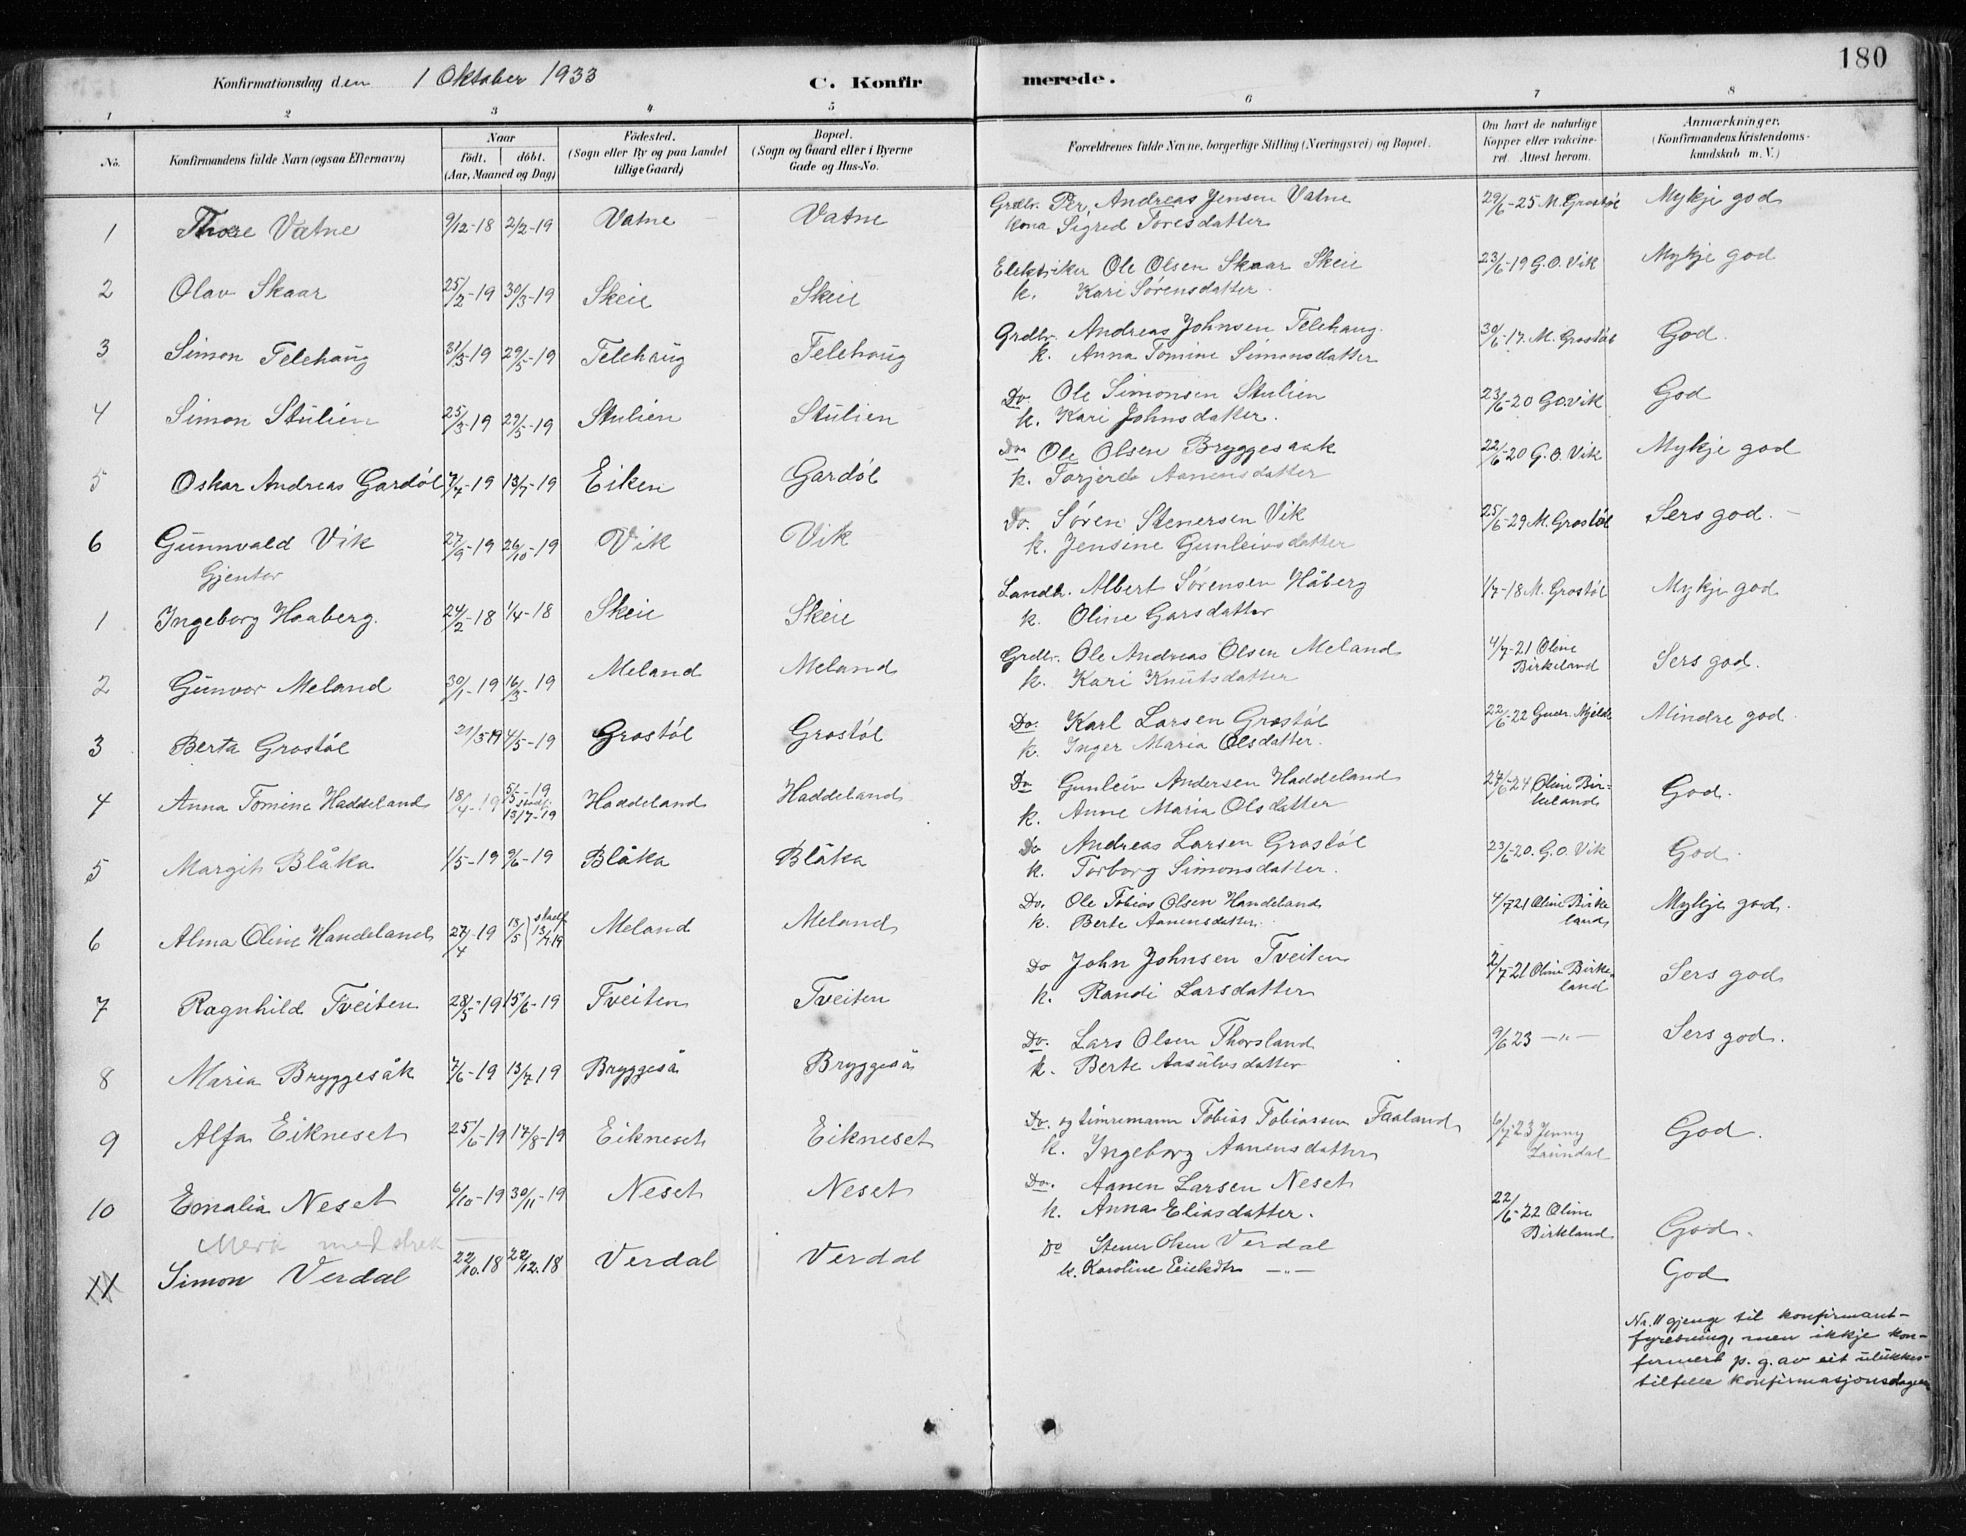 180
Konfirmationsdag den 1 Oktober 1933 C. Konfirmerede.
1 2 3 4 5 6 7 8
No. Konfirmandens fulde Navn (ogsaa Efternavn) Naar födt. döbt. (Aar, Maaned og Dag) Födested. (Sogn eller By og paa Landet tillige Gaard) Bopæl. (Sogn og Gaard eller i Byerne Gade og Hus-No. Forældrenes fulde Navne, borgerlige Stilling (Næringsvei) og Bopæl. Om havt de naturlige Kopper eller vakcineret. Attest herom. Anmærkninger. (Konfirmandens Kristendomskundskab m. V.)
1 Thore Vatne 9/12-18 2/2-19 Vatne Vatne Grdbr. Per Andreas Jensen Vatne 29/6-25 M. Grostøl Mykje god
kona Sigred Toresdatter
2 Olav Skaar 25/2-19 30/3-19 Skeie Skeie Elektriker Ole Olsen Skaar Skeie 23/6-19 G.O. Vik Mykje god
k. Kari Sørensdatter
3 Simon Telehaug 31/3-19 29/5-19 Telehaug Telehaug Grdbr. Andreas Johnsen Telehaug 30/6-17. M. Grostøl God.
k. Anna Tomine Simonsdatter
4 Simon Stulien 25/3-19 29/5-19 Stulien Stulien Do. Ole Simonsen Stulien 23/6-20 G.O. Vik God
k. Kari Johnsdatter.
5 Oskar Andreas Gardøl 7/4-19 13/7-19 Eiken Gardøl Do. Ole Olsen Bryggesaak 22/6-20 G.O. Vik Mykje god
k. Torjerd Aanensdatter
6 Gunnvald Vik 27/9-19 26/10-19 Vik Vik Do. Søren Stenersen Vik 25/6-29 M. Grostøl Sers god.
k. Jensine Gunleivsdatter
Gjentor
1 Ingeborg Haaberg. 24/2-18 1/4-18 Skeie Skeie Landh. Albert Sørensen Håberg 1/7-18 M. Grostøl Mykje god
k. Oline Garsdatter
2 Gunvor Meland 30/1-19 16/3-19 Meland Meland Grdbr. Ole Andreas Olsen Meland 4/7-21 Oline Birkeland Sers god.
k. Kari Knutsdatter
3 Berta Grostøl 21/3-19 4/5-19 Grostøl Grostøl Do. Karl Larsen Grostøl 22/6-22 Gudr. Mjelde Mindre god.
k. Inger Maria Olsdatter.
4 Anna Tomine Haddeland 18/4-19 5/5-19 stadf. 13/7-19 Haddeland Haddeland Do Gunleiv Andersen Haddeland 27/6-24 Oline Birkeland God.
k. Anne Maria Olsdatter
5 Margit Blåka 1/5-19 9/6-19 Blåka Blåka Do Andreas Larsen Grostøl 23/6-20. G.O. Vik God.
k. Torborg Simonsdatter.
6 Alma Oline Handeland 27/4-19 18/5 stadf 13/7 19 Meland Meland Do. Ole Tobias Olsen Handeland 4/7 21 Oline Birkeland Mykje god.
k. Berte Aanensdatter.
7 Ragnhild Tveiten 28/5-19 15/6-19 Tveiten Tveiten Do John Johnsen Tveiten 2/7-21 Oline Birkeland Sers god
k. Randi Larsdatter
8 Maria Bryggesåk 7/6-19 13/7 19 Bryggeså Bryggeså Do. Lars Olsen Thorsland 9/6 23 —"— Sers god.
k. Berte Aasulvsdatter
9 Alfa Eikneset 25/6-19 17/8-19 Eikneset Eikneset Do. og timremann Tobias Tobiassen Faaland 6/7-23 Jenny Laundal God.
k. Ingeborg Aanensdatter
10 Emalia Neset 6/10-19 30/11-19 Neset Neset Do. Aanen Larsen Neset 22/6-22 Oline Birkland God.
k. Anna Eliasdatter.
Merk med strek
11 Simon Verdal 22/10.18 22/12.18 Verdal Verdal Do Stener Olsen Verdal God
k. Karoline Eieksdtr —"—
Nr. 11 gjenge til konfirmant-
fyrebuing, men ikkje kon-
firmert p. g. av eit ulukkes-
tilfelle konfirmasjonsdagen